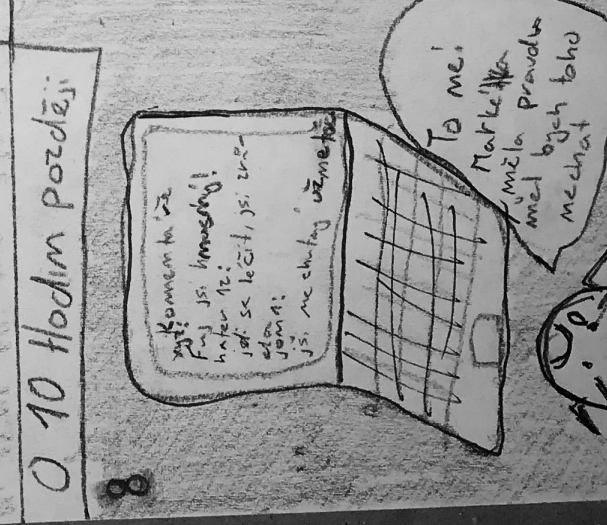 O 10 Hodin později
8
Komentáře
Fuj jsi hnusný!
hater 12:
jdi se léčit, jsi
jsi nechutný
To né!
Markétka
měla pravdu
měl bych toho
nechat